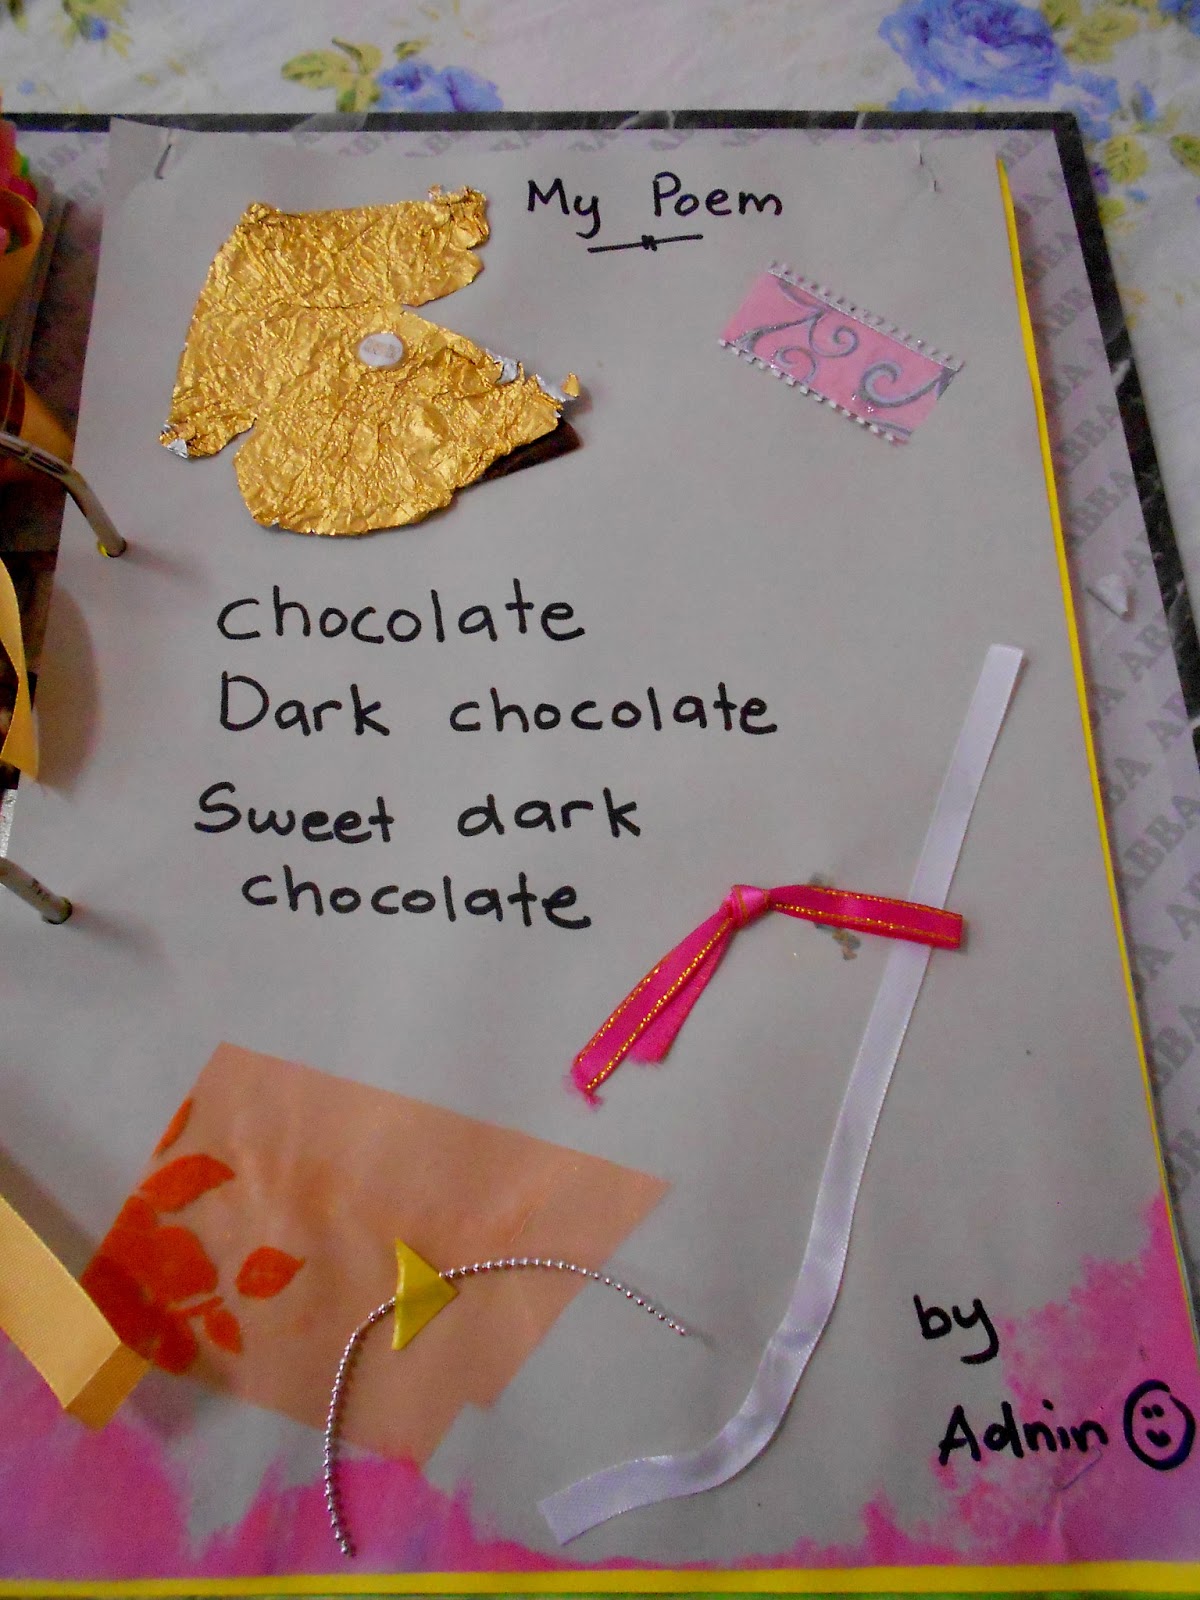 My Poem
chocolate
Dark chocolate
Sweet dark
chocolate
by
Adnin
ABBA
ABBA
ABBA
ABBA
ABBA